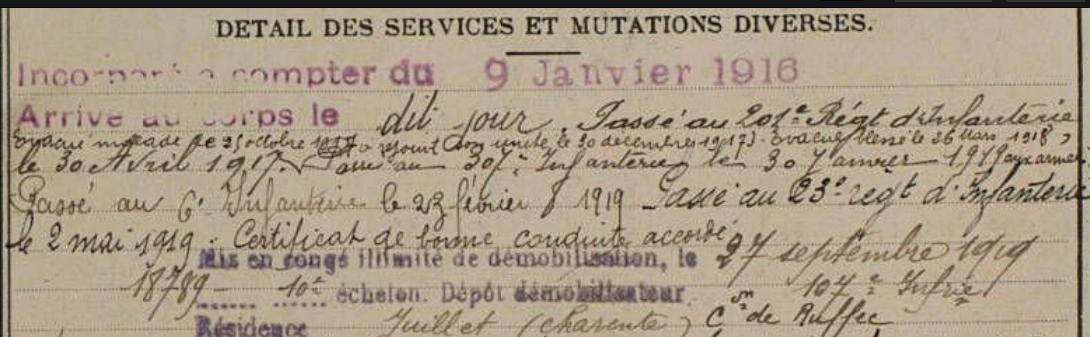 DETAIL DES SERVICES ET MUTATIONS DIVERSES.
Incorporé à compter du 9 Janvier 1916
Arrivé au corps le dit jour. Passé au 201e Régt d'Infanterie
Evacué malade le 31 octobre 1917 a rejoint son unité le 30 décembre 1917. Evacué blessé le 26 Mars 1918,
le 30 Avril 1917. Passé au 307e Infanterie le 30 Janvier 1919 aux armées
Passé au 6e Infanterie le 23 février 1919 Passé au 23e régt d'Infanterie
le 2 mai 1919. Certificat de bonne conduite accordé
Mis en congé illimité de démobilisation, le 27 septembre 1919
18789 10e échelon. Dépôt démobilisateur 107e Infrie
Résidence Juillet (Charente) Con de Ruffec